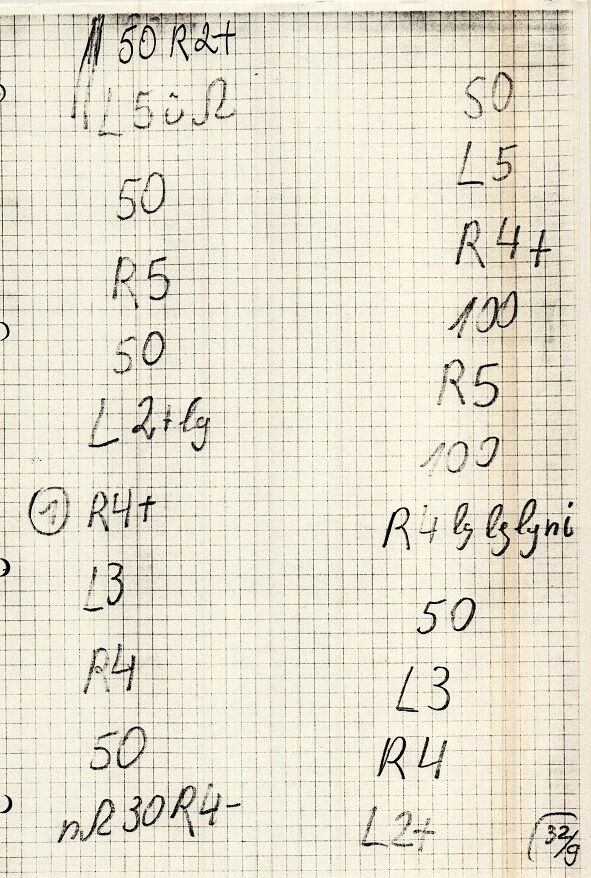 50 R2+
L5üΩ
50
R5
50
L2+lg
① R4+
L3
R4
50
nΩ30R4-
50
L5
R4+
100
R5
100
R4 lg lg lg ni
50
L3
R4
L2+
32/g